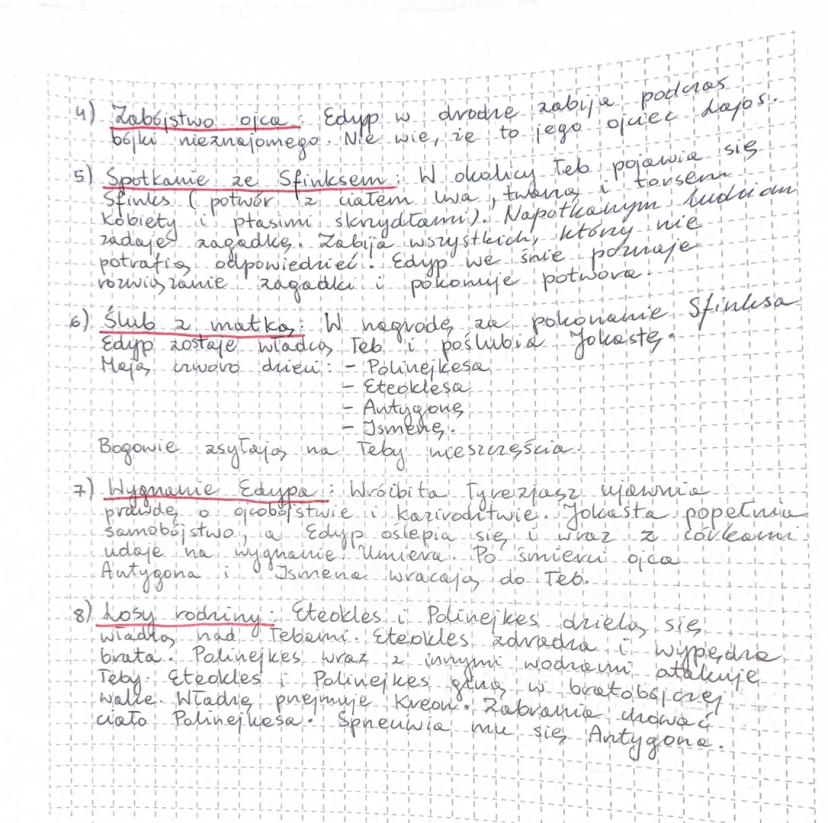 4) Zabójstwo ojca: Edyp w drodze zabija podczas
bójki nieznajomego. Nie wie, że to jego ojciec Lajos.
5) Spotkanie ze Sfinksem: W okolicy Teb pojawia się
Sfinks (potwór z ciałem lwa, twarzą i torsem
kobiety i ptasimi skrzydłami). Napotkanym ludziom
zadaje zagadkę. Zabija wszystkich, którzy nie
potrafią odpowiedzieć. Edyp we śnie poznaje
rozwiązanie zagadki i pokonuje potwora.
6) Ślub z matką: W nagrodę za pokonanie Sfinksa
Edyp zostaje władcą Teb i poślubia Jokastę.
Mają czworo dzieci: - Polinejkesa
- Eteoklesa
- Antygonę
- Ismenę.
Bogowie zsyłają na Teby nieszczęścia.
7) Wygnanie Edypa: Wróżbita Tyrezjasz ujawnia
prawdę o ojcobójstwie i kazirodztwie. Jokasta popełnia
samobójstwo, a Edyp oślepia się i wraz z córkami
udaje na wygnanie. Umiera. Po śmierci ojca
Antygona i Ismena wracają do Teb.
8) Losy rodziny: Eteokles i Polinejkes dzielą się
władzą nad Tebami. Eteokles zdradza i wypędza
brata. Polinejkes wraz z innymi wodzami atakuje
Teby. Eteokles i Polinejkes giną w bratobójczej
walce. Władzę przejmuje Kreon. Zabrania chować
ciało Polinejkesa. Sprzeciwia mu się Antygona.